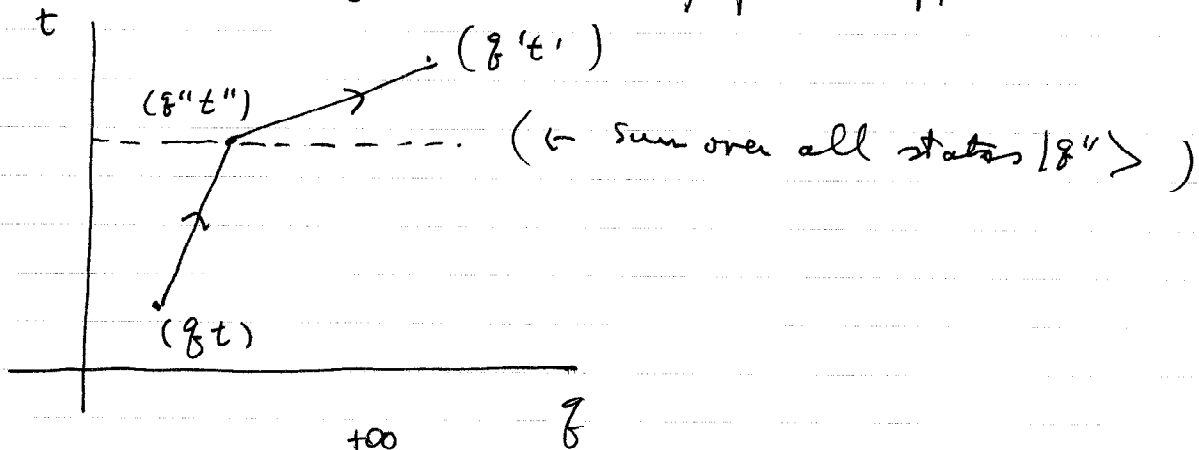 t
(q't')
(q"t")
(← sum over all states |q"> )
(qt)
q
+∞